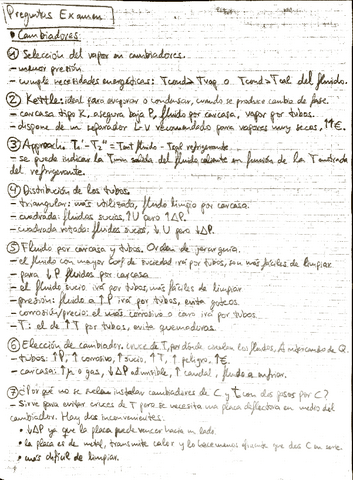 Preguntas Examen
• Cambiadores:
① Selección del vapor en cambiadores.
- menor presión
- cumple necesidades energéticas: Tcond > Treq o Tcond > Tcal del fluido.
② Kettles: ideal para evaporar o condensar, cuando se produce cambio de fase.
- carcasa tipo K, asegura baja P, fluido por carcasa, vapor por tubos.
- dispone de un separador L-V recomendado para vapores muy secos, ↑↑€.
③ Approach:
- se puede indicar la Tmin salida del fluido caliente en función de la T entrada
del refrigerante.
④ Distribución de los tubos.
- triangular: más utilizado, fluido limpio por carcasa.
- cuadrada: fluidos sucios, ↑U pero ↑ΔP.
- cuadrada rotada: fluidos sucios, ↓U pero ↓ΔP.
⑤ Fluido por carcasa y tubos. Orden de jerarquía.
- el fluido con mayor coef de suciedad irá por tubos, son más fáciles de limpiar
- para ↓P fluidos por carcasa.
- el fluido sucio irá por tubos, más fáciles de limpiar
- presión: fluido a ↑P irá por tubos, evita
- corrosión/precio: el más corrosivo o caro irá por tubos.
- T: el de ↑T por tubos, evita quemaduras.
⑥ Elección de cambiador: cruce de T, por dónde circulan los fluidos, A intercambio de Q.
- tubos: ↑P, ↑ corrosivo, ↑ sucio, ↑T, ↑ peligro, ↑€.
- carcasa: ↑μ o gas, ↓ΔP admisible, ↑ caudal, fluido a enfriar.
⑦ ¿Por qué no se suelen instalar cambiadores de C y T con dos pasos por C?
- Sirve para evitar cruces de T pero se necesita una placa deflectora en medio del
cambiador. Hay dos inconvenientes:
• ↓ΔP ya que la placa puede vencer hacia un lado.
• la placa es de metal, transmite calor y lo hace menos eficiente que dos C en serie.
• más difícil de limpiar.